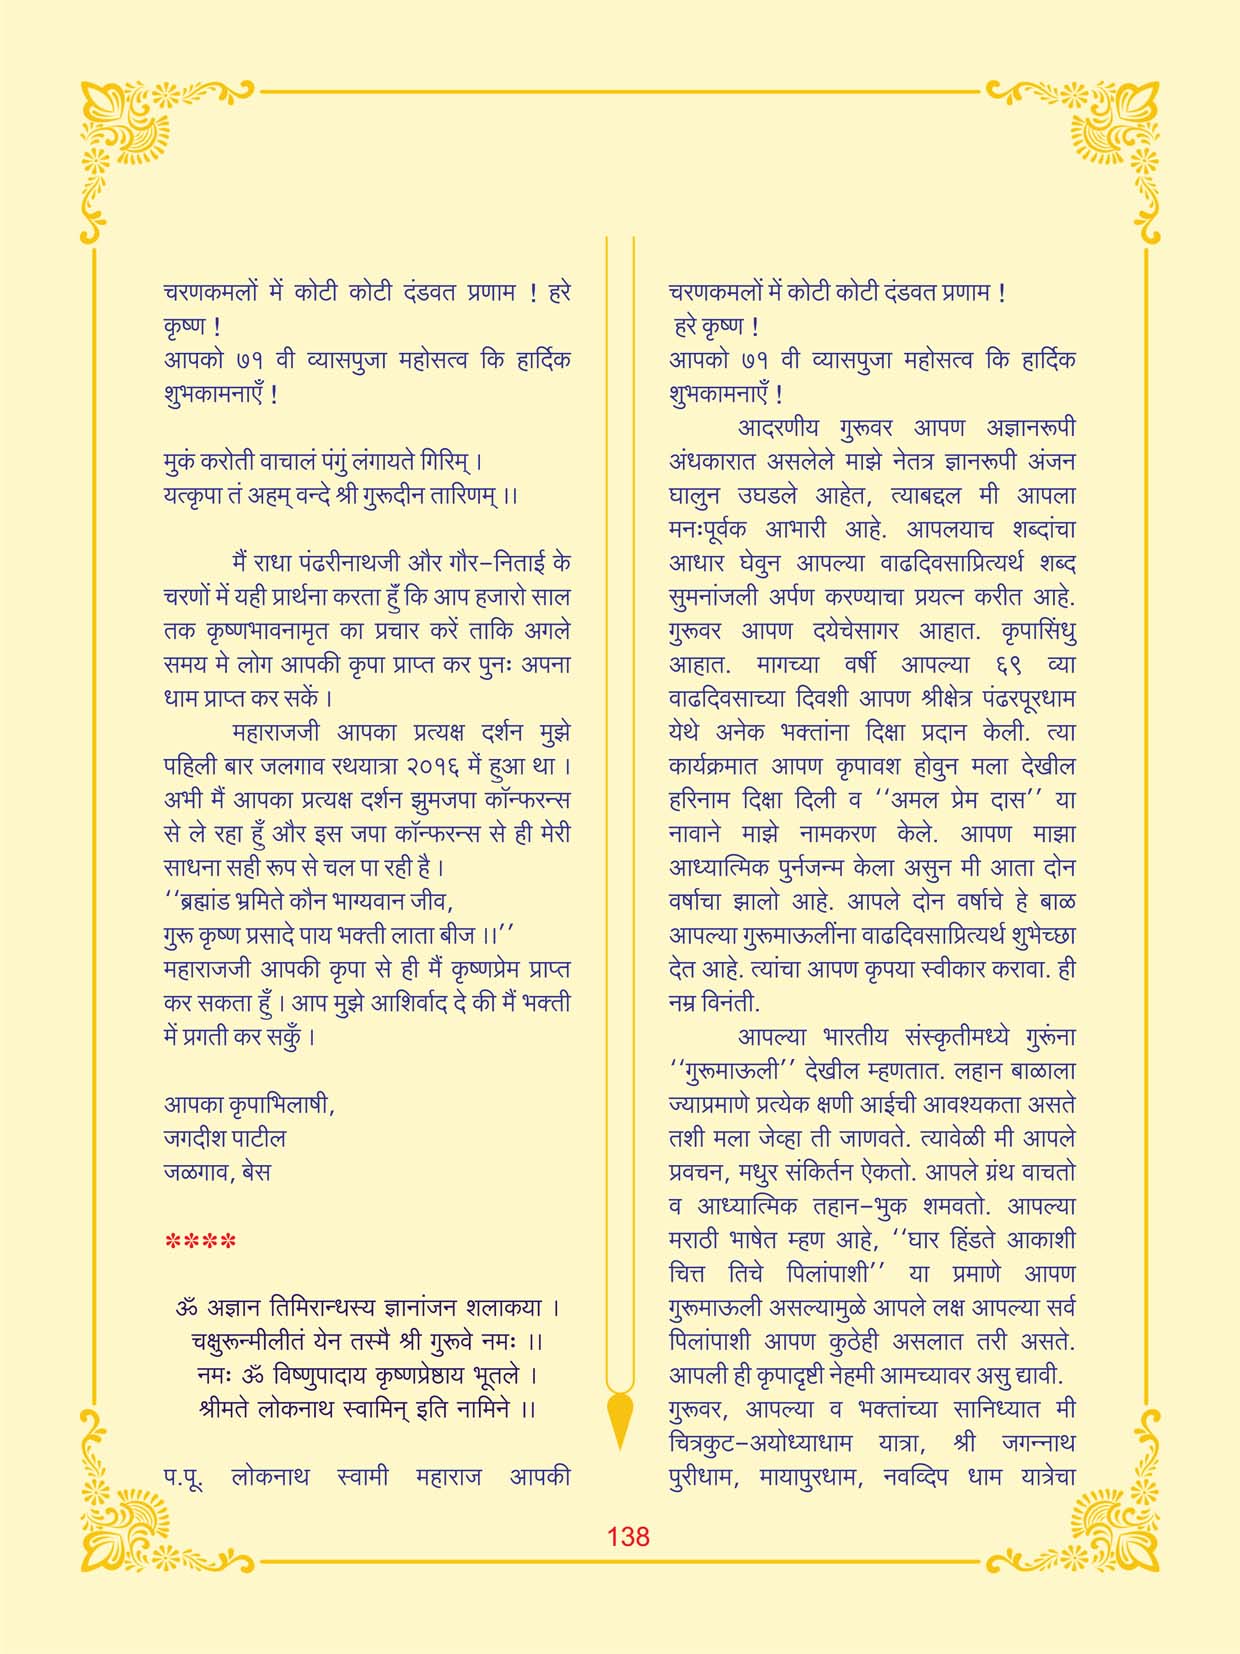 चरणकमलों में कोटी कोटी दंडवत प्रणाम ! हरे
कृष्ण !
आपको ७१ वी व्यासपुजा महोसत्व कि हार्दिक
शुभकामनाएँ !
मुकं करोती वाचालं पंगुं लंगायते गिरिम् ।
यत्कृपा तं अहम् वन्दे श्री गुरूदीन तारिणम् ।।
मैं राधा पंढरीनाथजी और गौर-निताई के
चरणों में यही प्रार्थना करता हुँ कि आप हजारो साल
तक कृष्णभावनामृत का प्रचार करें ताकि अगले
समय मे लोग आपकी कृपा प्राप्त कर पुनः अपना
धाम प्राप्त कर सकें ।
महाराजजी आपका प्रत्यक्ष दर्शन मुझे
पहिली बार जलगाव रथयात्रा २०१६ में हुआ था ।
अभी मैं आपका प्रत्यक्ष दर्शन झुमजपा कॉन्फरन्स
से ले रहा हुँ और इस जपा कॉन्फरन्स से ही मेरी
साधना सही रूप से चल पा रही है ।
‘‘ब्रह्मांड भ्रमिते कौन भाग्यवान जीव,
गुरू कृष्ण प्रसादे पाय भक्ती लाता बीज ।।’’
महाराजजी आपकी कृपा से ही मैं कृष्णप्रेम प्राप्त
कर सकता हुँ । आप मुझे आशिर्वाद दे की मैं भक्ती
में प्रगती कर सकुँ ।
आपका कृपाभिलाषी,
जगदीश पाटील
जळगाव, बेस
****
ॐ अज्ञान तिमिरान्धस्य ज्ञानांजन शलाकया ।
चक्षुरून्मीलीतं येन तस्मै श्री गुरूवे नमः ।।
नमः ॐ विष्णुपादाय कृष्णप्रेष्ठाय भूतले ।
श्रीमते लोकनाथ स्वामिन् इति नामिने ।।
प.पू. लोकनाथ स्वामी महाराज आपकी
चरणकमलों में कोटी कोटी दंडवत प्रणाम !
हरे कृष्ण !
आपको ७१ वी व्यासपुजा महोसत्व कि हार्दिक
शुभकामनाएँ !
आदरणीय गुरूवर आपण अज्ञानरूपी
अंधकारात असलेले माझे नेतत्र ज्ञानरूपी अंजन
घालुन उघडले आहेत, त्याबद्दल मी आपला
मनःपूर्वक आभारी आहे. आपलयाच शब्दांचा
आधार घेवुन आपल्या वाढदिवसाप्रित्यर्थ शब्द
सुमनांजली अर्पण करण्याचा प्रयत्न करीत आहे.
गुरूवर आपण दयेचेसागर आहात. कृपासिंधु
आहात. मागच्या वर्षी आपल्या ६९ व्या
वाढदिवसाच्या दिवशी आपण श्रीक्षेत्र पंढरपूरधाम
येथे अनेक भक्तांना दिक्षा प्रदान केली. त्या
कार्यक्रमात आपण कृपावश होवुन मला देखील
हरिनाम दिक्षा दिली व ‘‘अमल प्रेम दास’’ या
नावाने माझे नामकरण केले. आपण माझा
आध्यात्मिक पुर्नजन्म केला असुन मी आता दोन
वर्षाचा झालो आहे. आपले दोन वर्षाचे हे बाळ
आपल्या गुरूमाऊलींना वाढदिवसाप्रित्यर्थ शुभेच्छा
देत आहे. त्यांचा आपण कृपया स्वीकार करावा. ही
नम्र विनंती.
आपल्या भारतीय संस्कृतीमध्ये गुरूंना
‘‘गुरूमाऊली’’ देखील म्हणतात. लहान बाळाला
ज्याप्रमाणे प्रत्येक क्षणी आईची आवश्यकता असते
तशी मला जेव्हा ती जाणवते. त्यावेळी मी आपले
प्रवचन, मधुर संकिर्तन ऐकतो. आपले ग्रंथ वाचतो
व आध्यात्मिक तहान-भुक शमवतो. आपल्या
मराठी भाषेत म्हण आहे, ‘‘घार हिंडते आकाशी
चित्त तिचे पिलांपाशी’’ या प्रमाणे आपण
गुरूमाऊली असल्यामुळे आपले लक्ष आपल्या सर्व
पिलांपाशी आपण कुठेही असलात तरी असते.
आपली ही कृपादृष्टी नेहमी आमच्यावर असु द्यावी.
गुरूवर, आपल्या व भक्तांच्या सानिध्यात मी
चित्रकुट-अयोध्याधाम यात्रा, श्री जगन्नाथ
पुरीधाम, मायापुरधाम, नवव्दिप धाम यात्रेचा
138